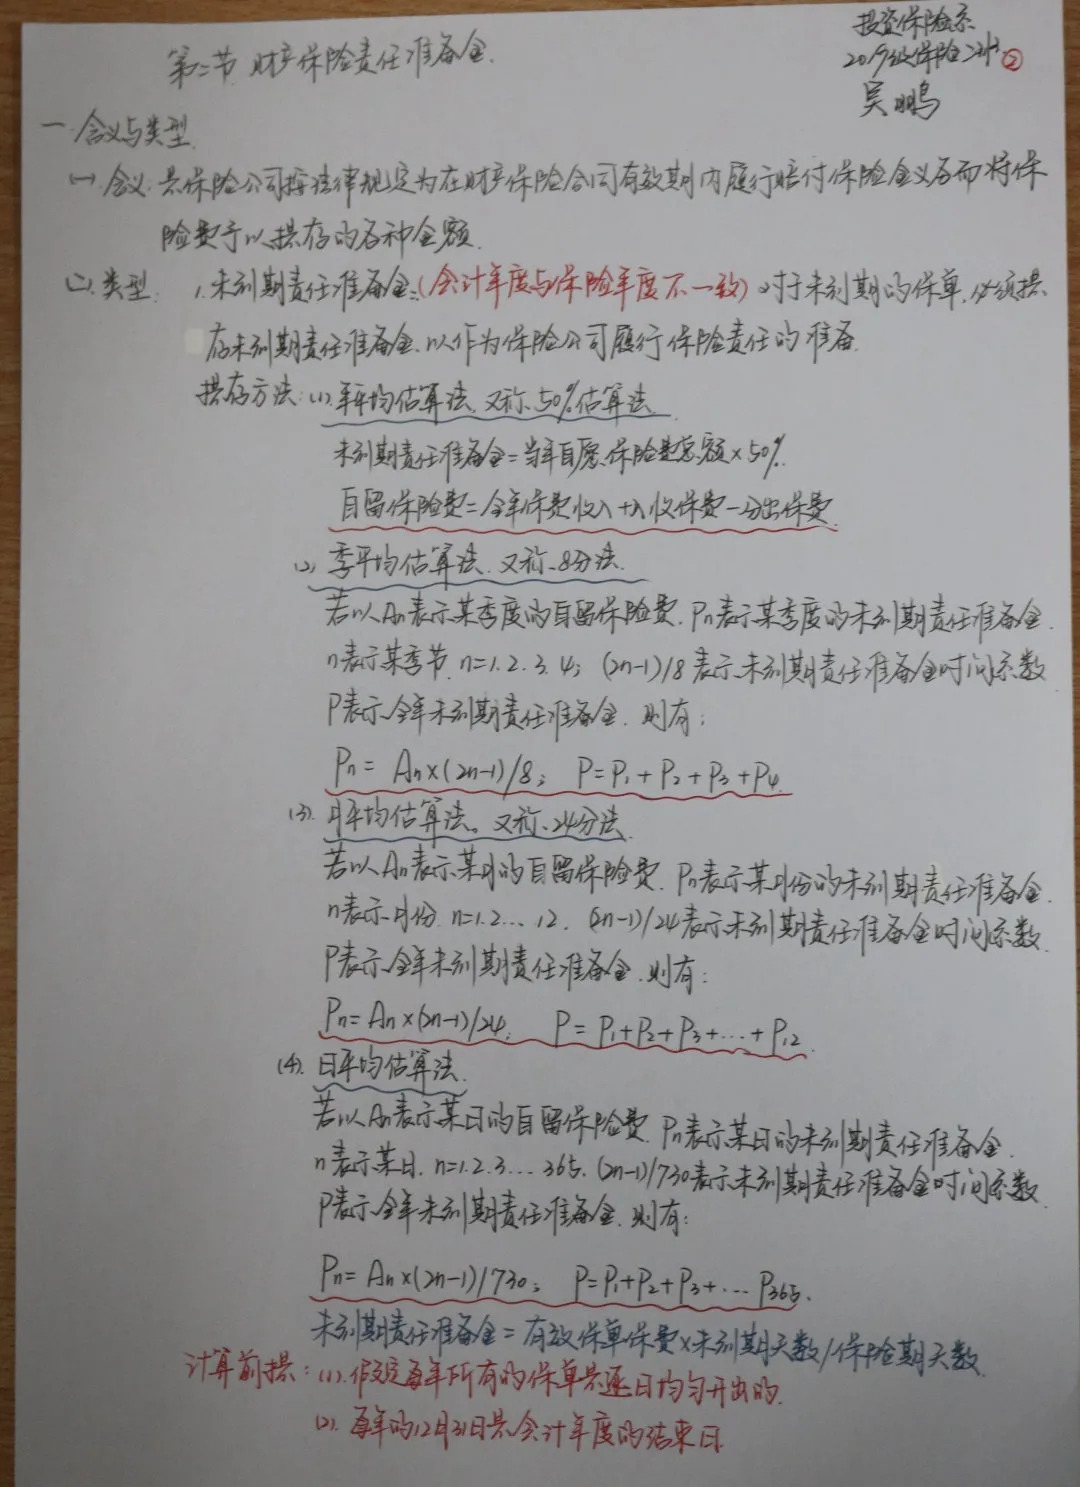 第二节 财产保险责任准备金.
投资保险系
2019级保险二班 ②
吴鹏
一.含义与类型.
(一).含义:是保险公司按法律规定为在财产保险合同有效期内履行赔付保险金义务而将保
险费予以提存的各种金额.
(二).类型: 1.未到期责任准备金:(会计年度与保险年度不一致)对于未到期的保单,必须提
存未到期责任准备金,以作为保险公司履行保险责任的准备.
提存方法:(1).年平均估算法,又称、50%估算法
未到期责任准备金=当年自愿保险费总额×50%.
自留保险费=全年保费收入+入收保费-分出保费
(2).季平均估算法.又称、8分法.
若以An表示某季度的自留保险费.Pn表示某季度的未到期责任准备金.
n表示某季节.n=1.2.3.4; (2n-1)/8表示未到期责任准备金时间系数
P表示全年未到期责任准备金.则有:
Pn= An×(2n-1)/8; P=P1+P2+P3+P4.
(3).月平均估算法。又称、24分法.
若以An表示某月的自留保险费.Pn表示某月份的未到期责任准备金.
n表示月份.n=1.2...12. (2n-1)/24表示未到期责任准备金时间系数.
P表示全年未到期责任准备金.则有:
Pn=An×(2n-1)/24; P=P1+P2+P3+...+P12.
(4).日平均估算法.
若以An表示某日的自留保险费.Pn表示某日的未到期责任准备金.
n表示某日.n=1.2.3...365.(2n-1)/730表示未到期责任准备金时间系数.
P表示全年未到期责任准备金.则有:
Pn=An×(2n-1)/730; P=P1+P2+P3+...P365.
未到期责任准备金=有效保单保费×未到期天数/保险期天数.
计算前提:(1).假定每年所有的保单是逐日均匀开出的.
(2).每年的12月31日是会计年度的结束日.